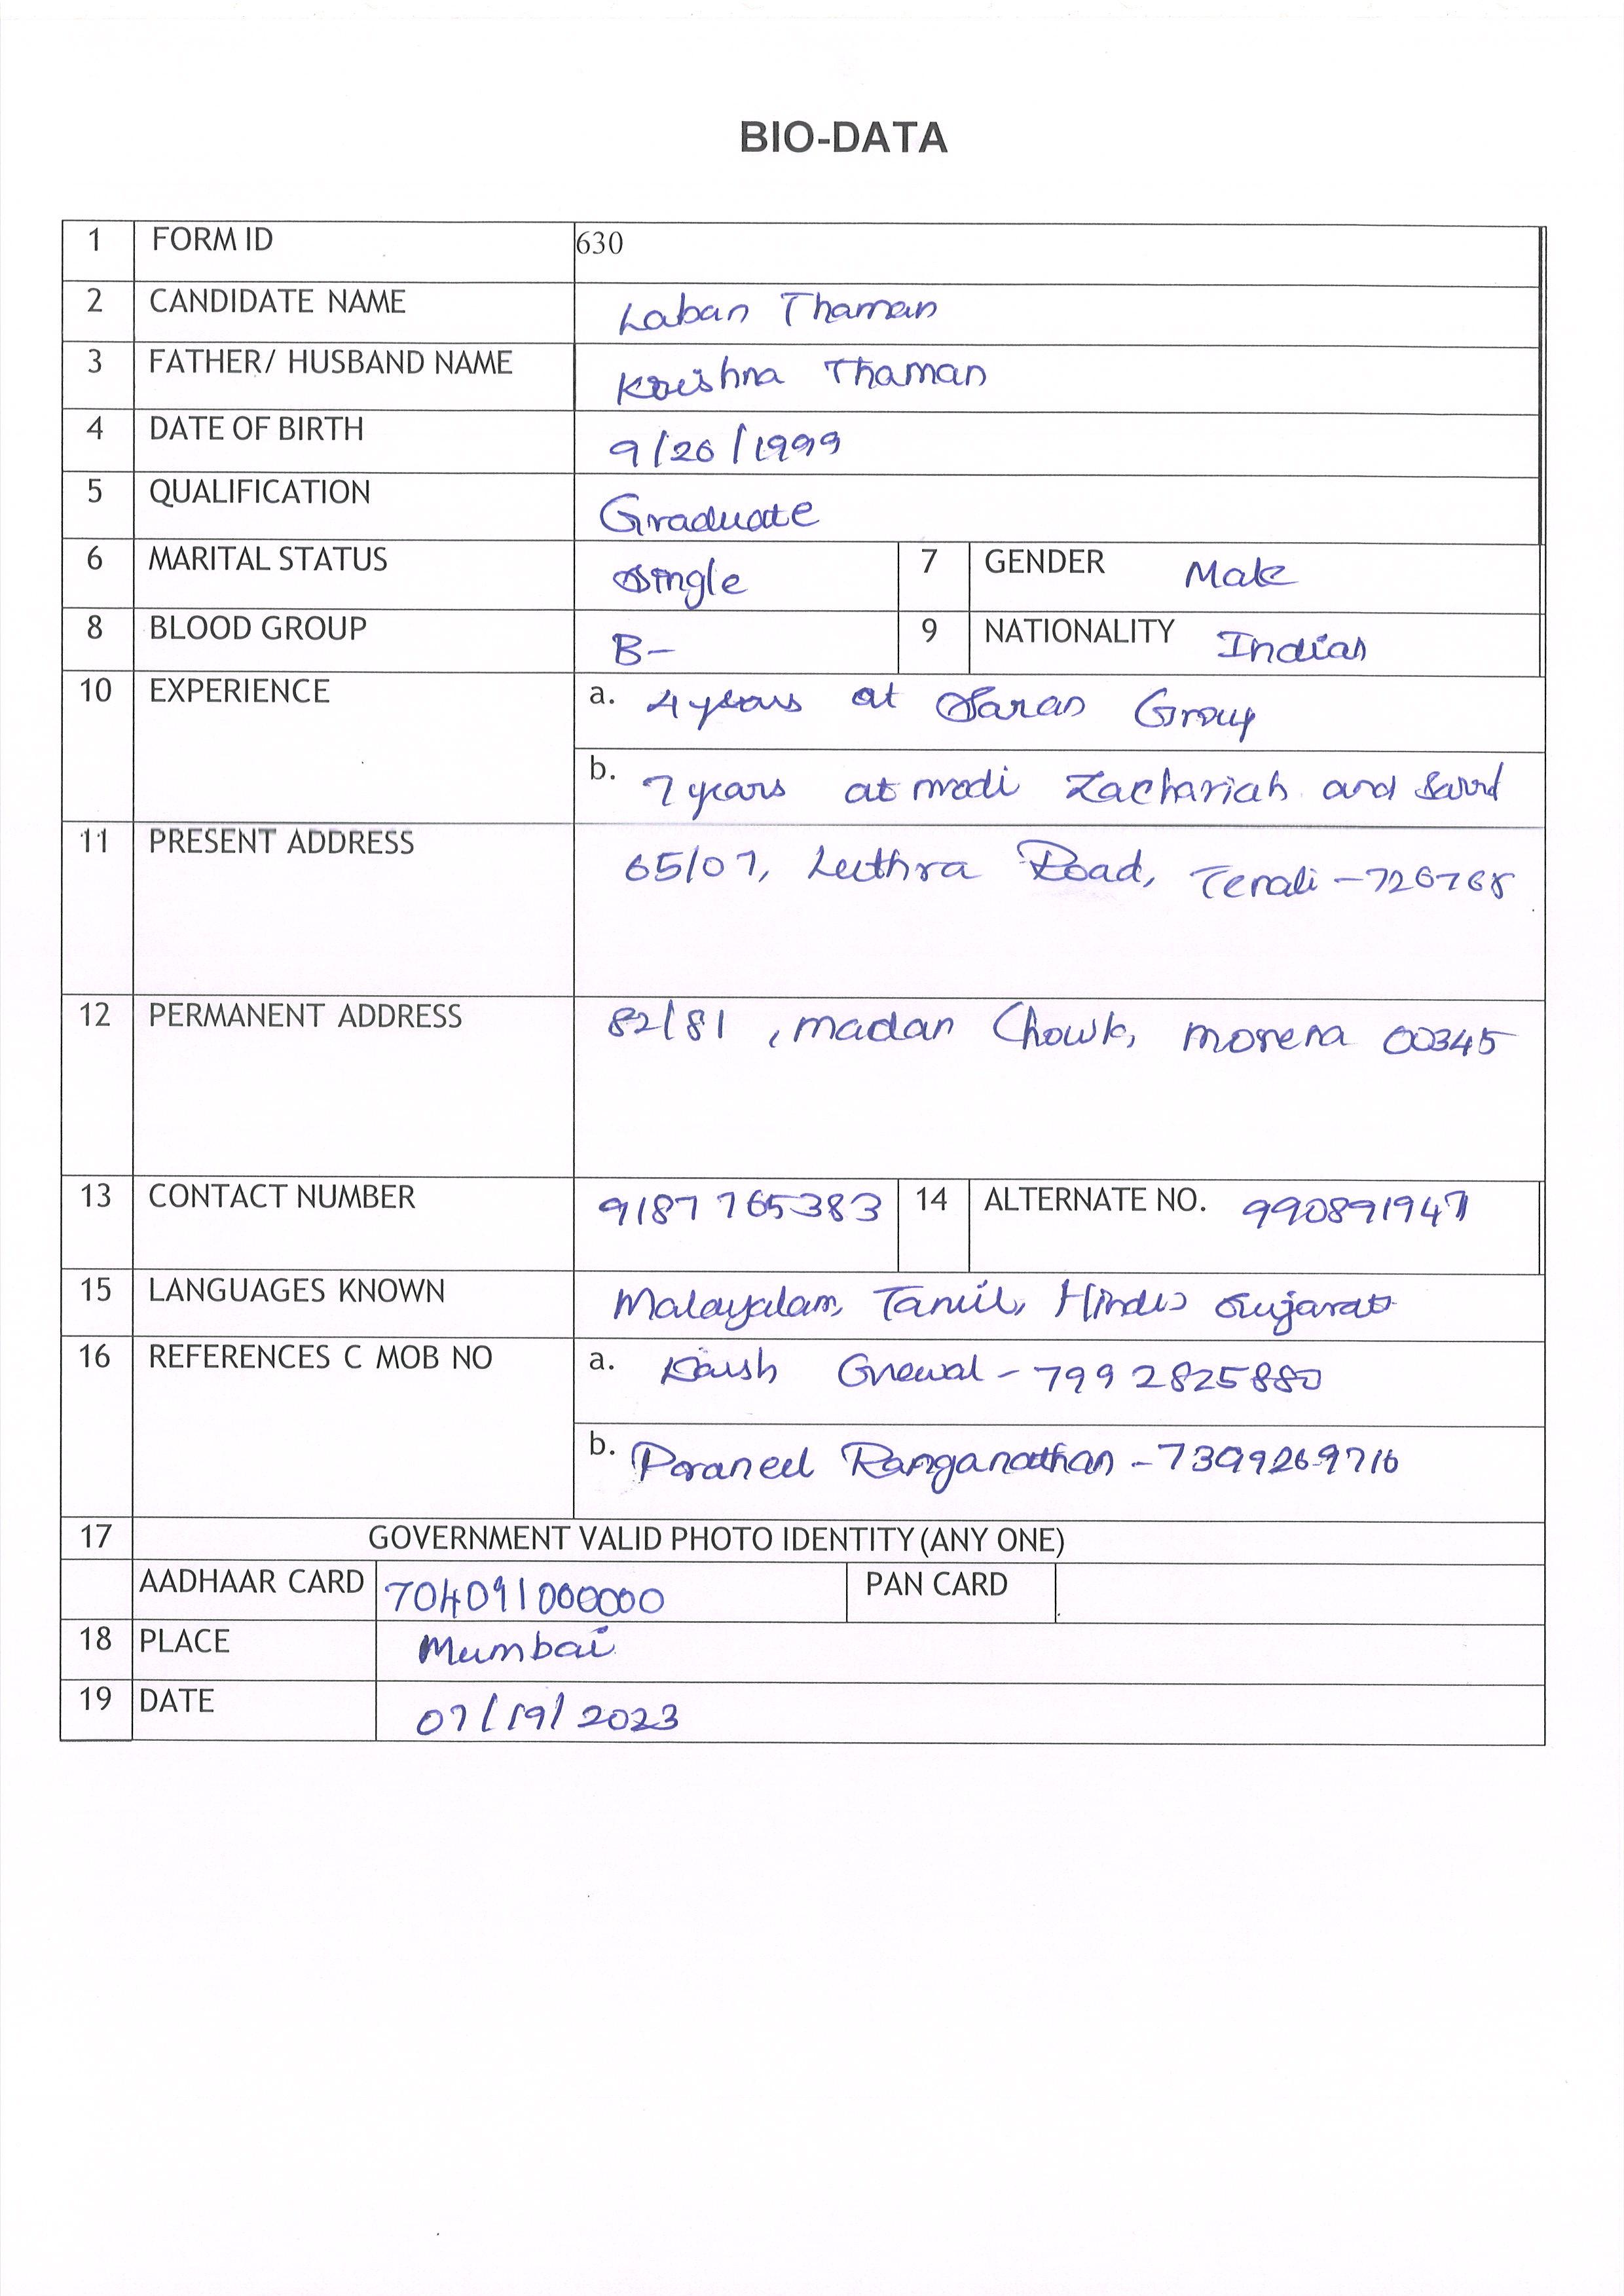 BIO-DATA
1 FORM ID 630
2 CANDIDATE NAME Laban Thaman
3 FATHER/ HUSBAND NAME Krishna Thaman
4 DATE OF BIRTH 9/26/1999
5 QUALIFICATION Graduate
6 MARITAL STATUS Single 7 GENDER Male
8 BLOOD GROUP B- 9 NATIONALITY Indian
10 EXPERIENCE a. 4 years at Saran Group
b. 7 years at modi Zachariah and
11 PRESENT ADDRESS 65/07, Luthra Road, Tenali -726768
12 PERMANENT ADDRESS 82/81, madan Chowk, morena 00345
13 CONTACT NUMBER 9187765383 14 ALTERNATE NO. 990891947
15 LANGUAGES KNOWN Malayalam, Tamil, Hindi, Gujarati
16 REFERENCES C MOB NO a. Grewal - 7992825880
b. Praneel Ranganathan - 7399269716
17 GOVERNMENT VALID PHOTO IDENTITY (ANY ONE)
AADHAAR CARD 704091000000 PAN CARD
18 PLACE Mumbai
19 DATE 07/19/2023